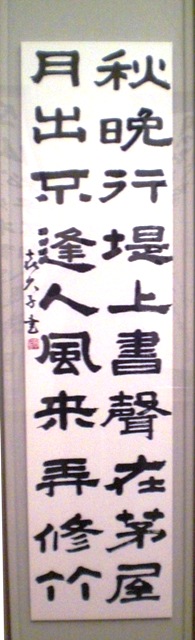 秋晚行堤上書聲在茅屋
月出不逢人風来弄修竹
喜久子書